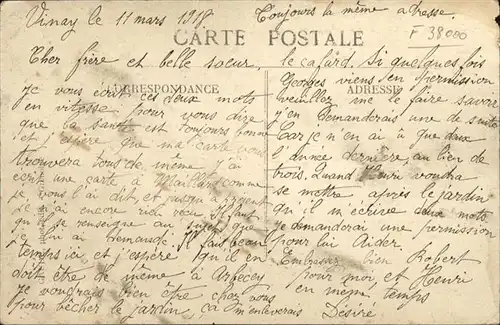 Vinay le 11 mars 1918
Toujours la même adresse.
F 38000
CARTE POSTALE
CORRESPONDANCE
ADRESSE
Cher frère et belle soeur,
Je vous écris ces deux mots
en vitesse pour vous dire
que la santé est toujours bonne
et j'espère que ma carte vous
trouvera tous de même j'ai
écrit une carte à Maillard comme
je vous l'ai dit, et jusqu'à présent
j'ai encore rien reçu il faut
qu'il se renseigne au sujet que
je lui ai demandé. Il fait beau
temps ici et j'espère qu'il en
doit être de même à Arbecey
Je voudrais bien être chez vous
pour bêcher le jardin, ça m'enlèverais
le cafard. Si quelques fois
Georges viens en permission
veuillez me le faire savoir
j'en demanderai une de suite
Car je n'en ai à que deux
l'année dernière au lieu de
trois. Quand Henri voudra
se mettre après le jardin
qu'il m'écrive deux mots
je demanderai une permission
pour lui Aider.
Embrasser bien Robert
pour moi et Henri
en même temps
Désiré